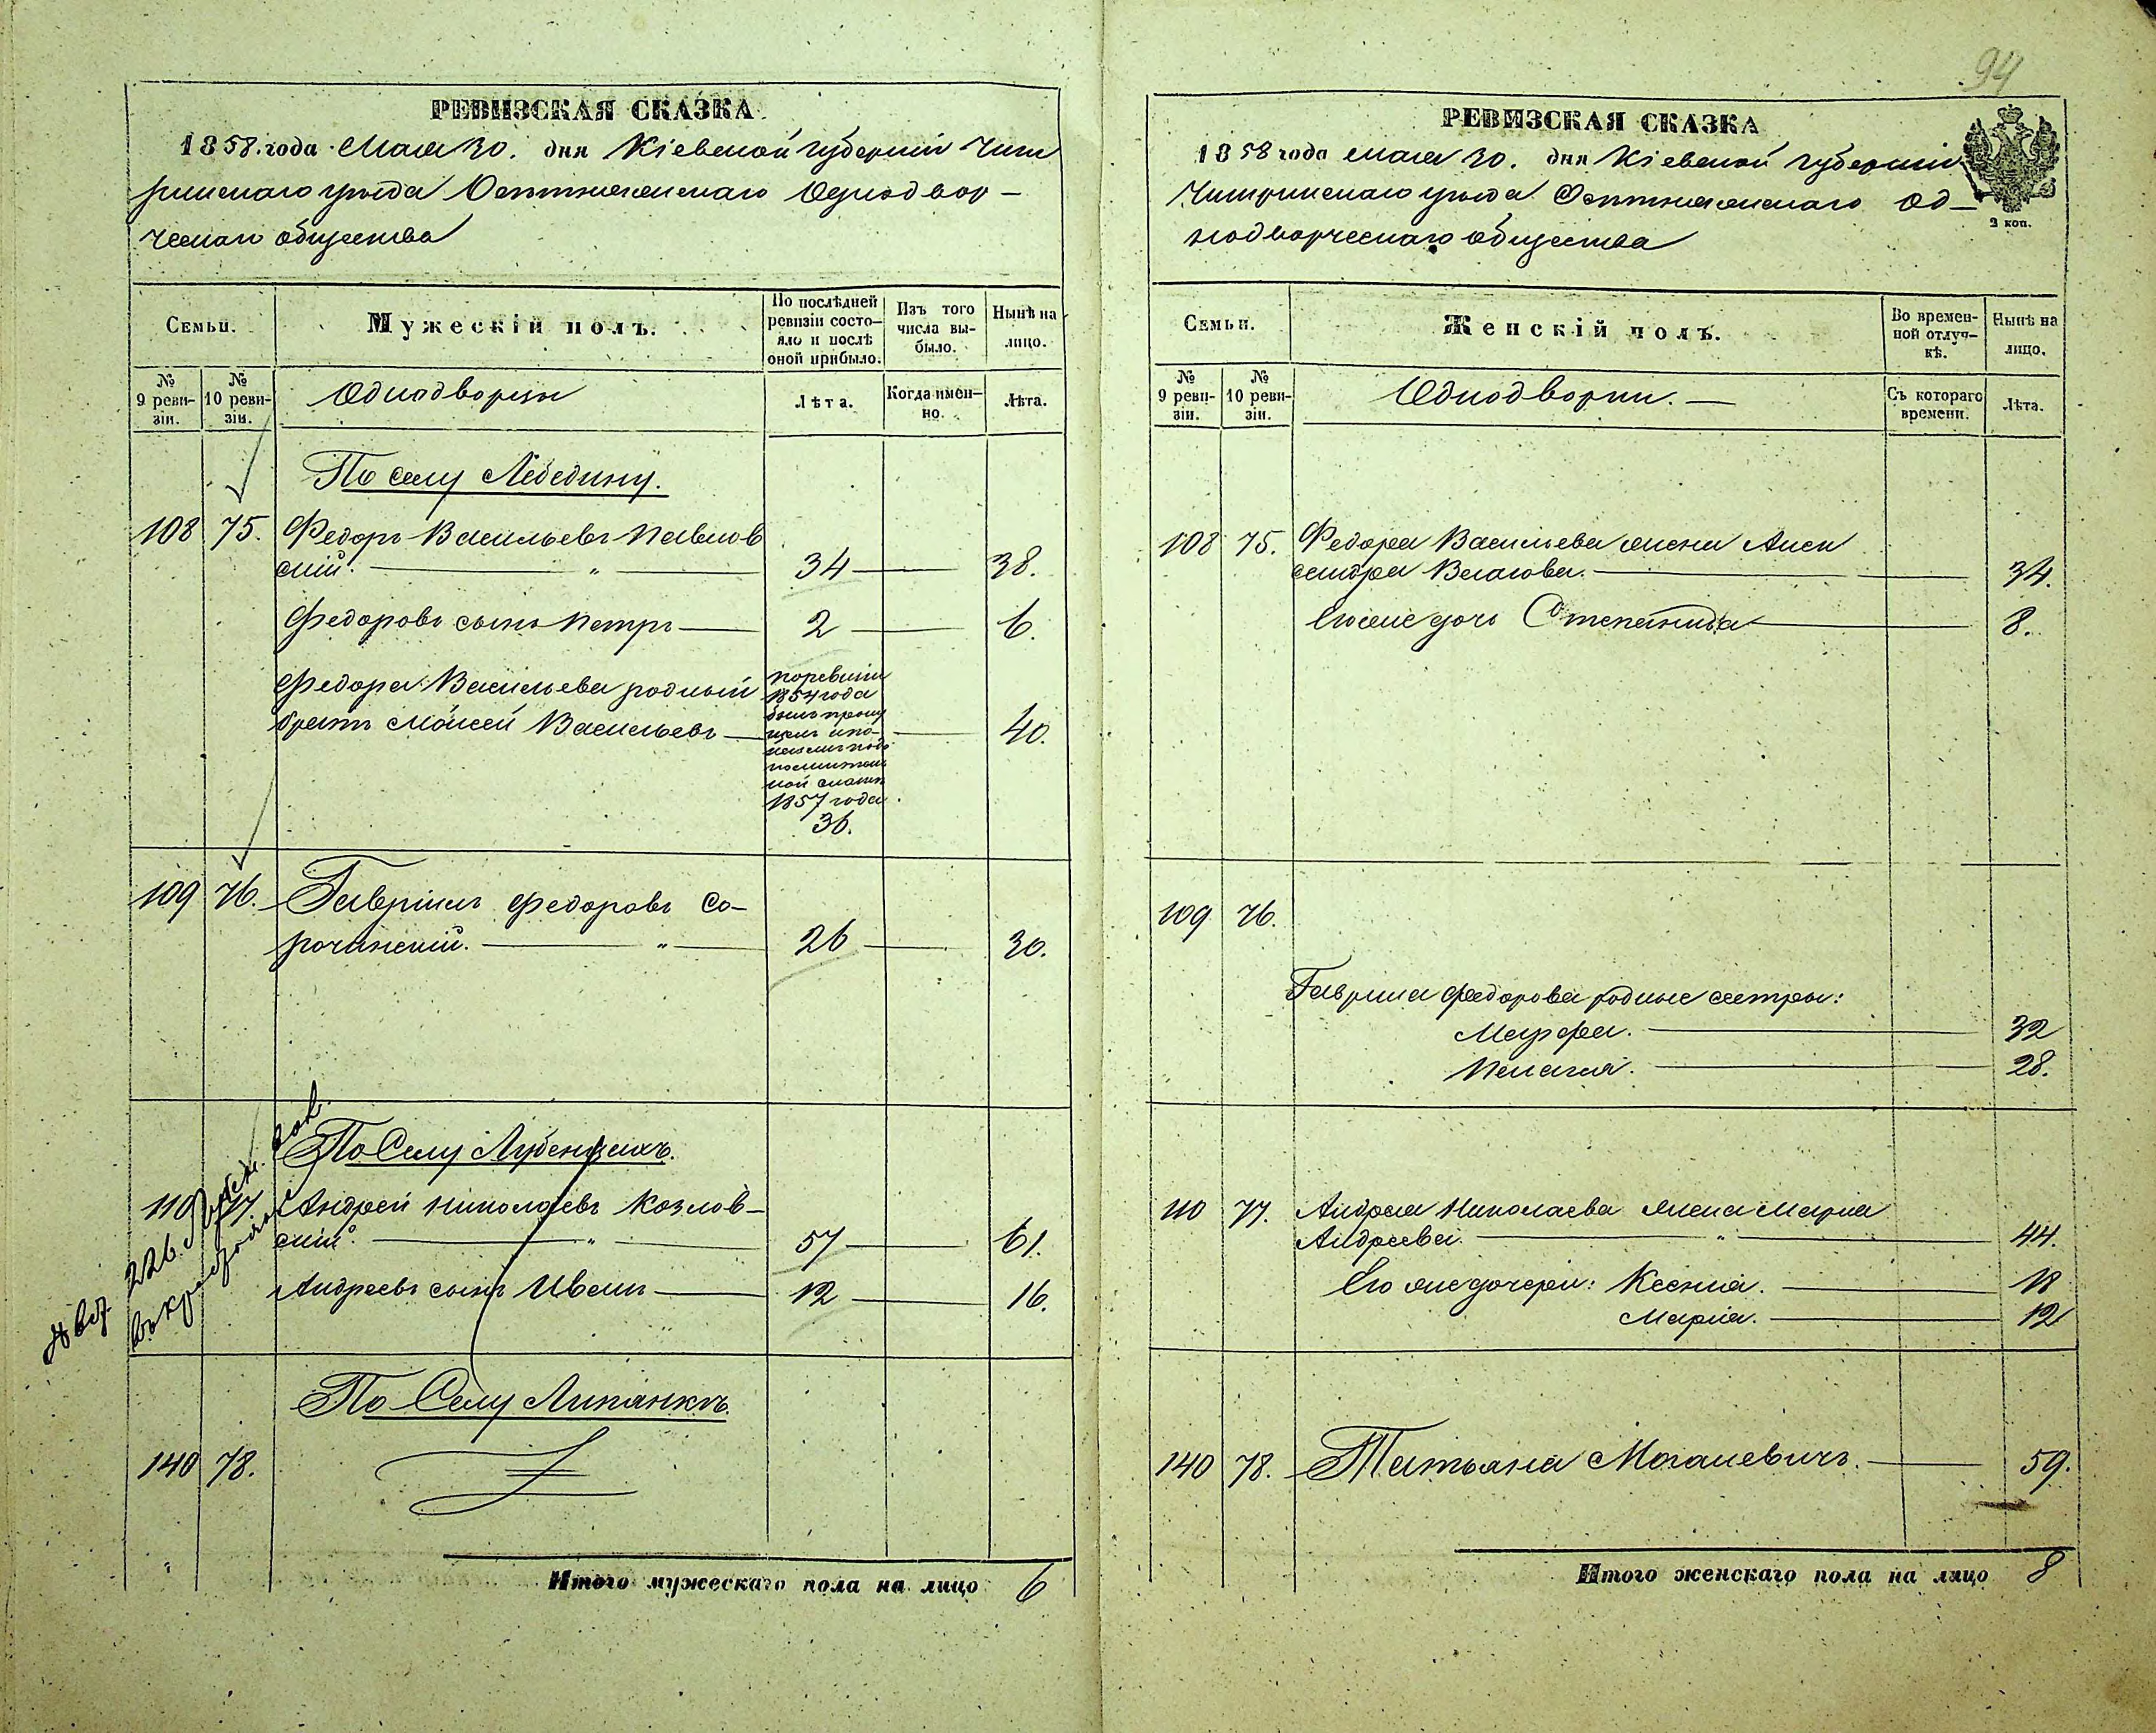 94
РЕВИЗСКАЯ СКАЗКА
1858 года Мая 30. дня Кіевской губерніи Чиги
ринскаго уѣзда Однодвор-
ческаго общества
Семьи.
Мужескій полъ.
По послѣдней ревизіи состо-яло и послѣ оной прибыло.
Изъ того числа вы-было.
Нынѣ на лицо.
№ 9 реви-зіи.
№ 10 реви-зіи.
Однодворцы
Лѣта.
Когда имен-но.
Лѣта.
По селу Лебедину.
108 75. Федоръ Васильевъ Павлов
скій. — " — 34 — 38.
Федоровъ сынъ Петръ — 2 — 6.
Федора Васильева родный
братъ Мойсей Васильевъ — 40.
по ревизіи
1854 года
былъ
1857 года
36.
109 76. Гавріилъ Федоровъ Со-
рочинскій. — " — 26 — 30.
По Селу Лубенцахъ.
110 77 Андрей Николаевъ Козлов-
скій. — " — 57 — 61.
Андреевъ сынъ Иванъ — 12 — 16.
По Селу Липянкѣ.
140 78.
Итого мужескаго пола на лицо 6
РЕВИЗСКАЯ СКАЗКА
1858 года мая 30. дня Кіевской губерніи
Чигиринскаго уѣзда Од-
нодворческаго общества
2 коп.
Семьи.
Женскій полъ.
Во времен-ной отлуч-кѣ.
Нынѣ на лицо.
№ 9 реви-зіи.
№ 10 реви-зіи.
Однодворки. —
Съ котораго времени.
Лѣта.
108 75. Федора Васильева жена Алек
сандра Власова. — 34.
Его же дочь Степанида — 8.
109 76.
Гаврила Федорова родные сестры:
Марфа. — 32
Пелагія. — 28.
110 77. Андрея Николаева жена Марія
Андреева. — " — 44.
Его же дочери: Ксенія. — 18
Марія. — 12
140 78. Татьяна — 59.
Итого женскаго пола на лицо 8